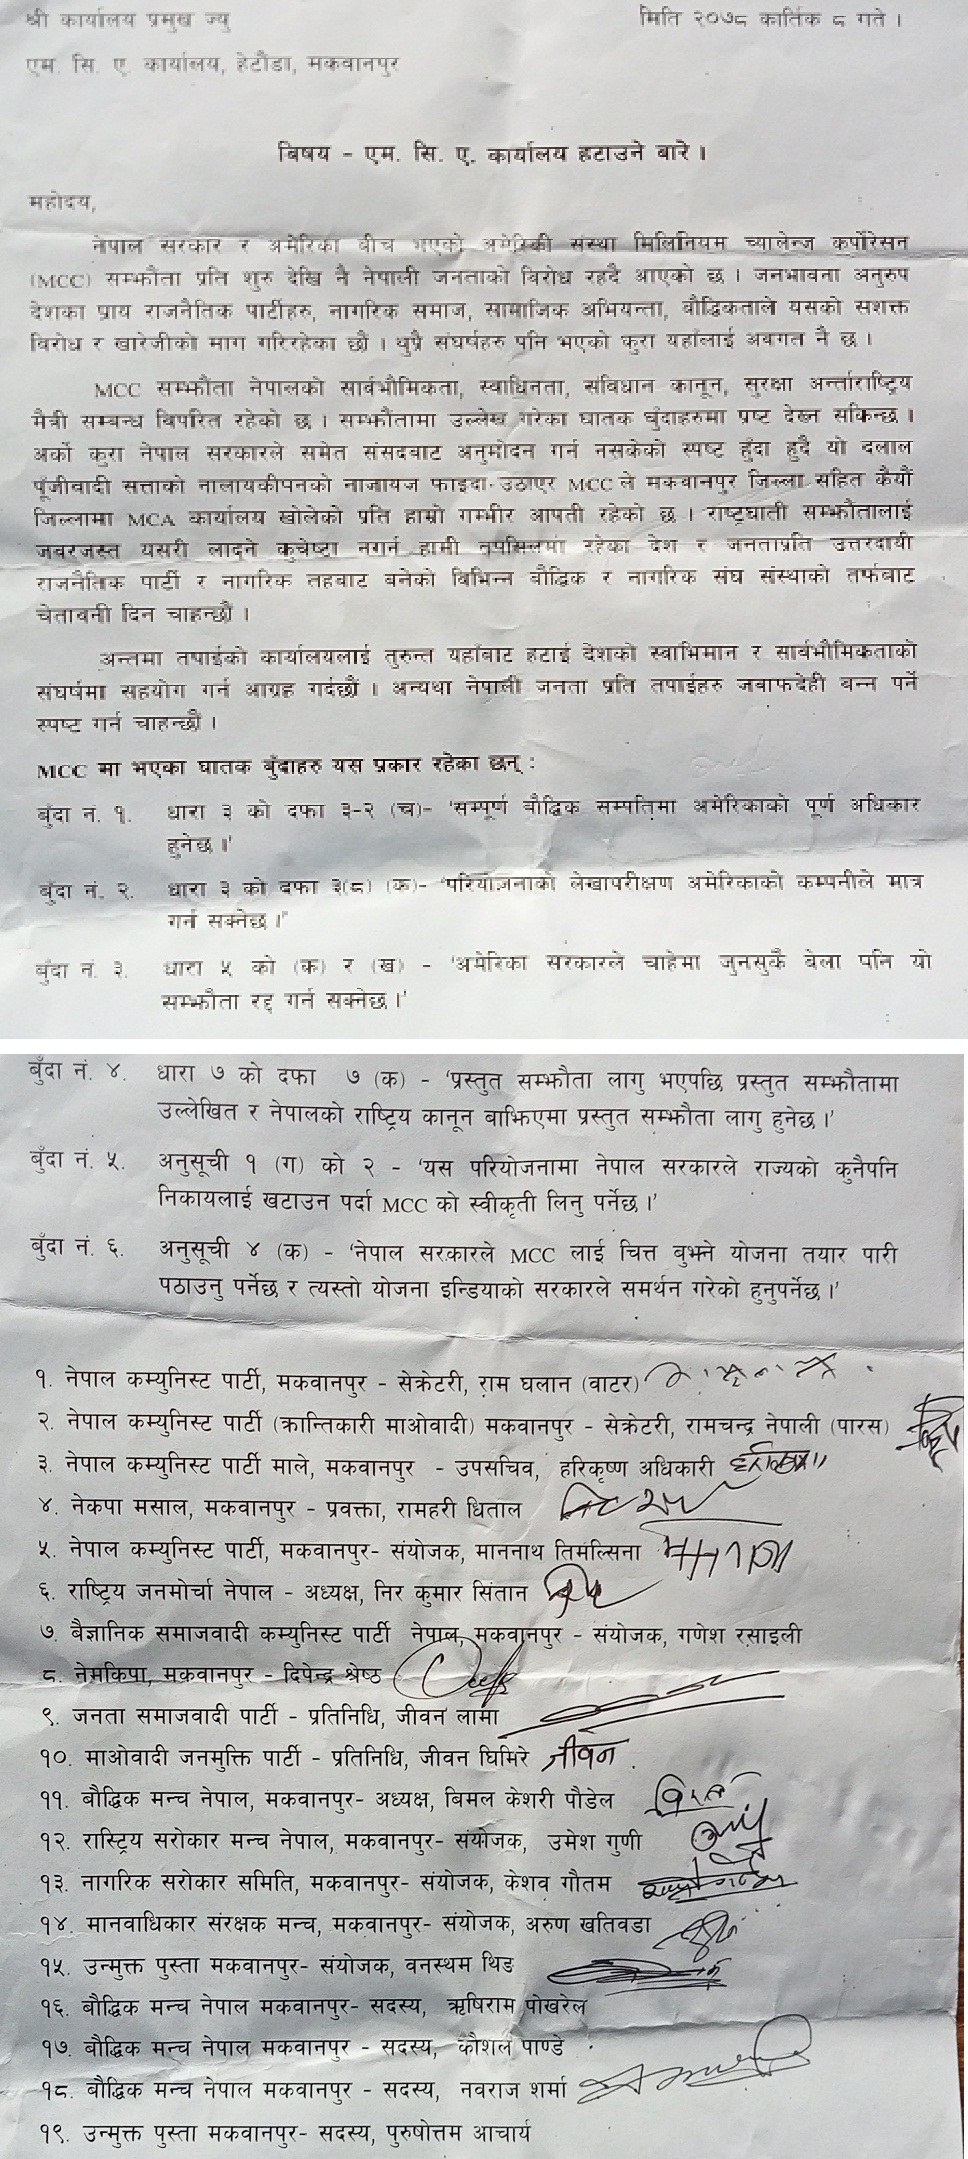 श्री कार्यालय प्रमुख ज्यु
मिति २०७८ कार्तिक ८ गते ।
एम. सि. ए. कार्यालय, हेटौंडा, मकवानपुर
बिषय - एम. सि. ए. कार्यालय हटाउने बारे ।
महोदय,
नेपाल सरकार र अमेरिका बीच भएको अमेरिकी संस्था मिलिनियम च्यालेन्ज कर्पोरेसन
(MCC) सम्झौता प्रति शुरु देखि नै नेपाली जनताको विरोध रहदै आएको छ । जनभावना अनुरुप
देशका प्राय राजनैतिक पार्टीहरु, नागरिक समाज, सामाजिक अभियन्ता, बौद्धिकताले यसको सशक्त
विरोध र खारेजीको माग गरिरहेका छौं । थुप्रै संघर्षहरु पनि भएको कुरा यहाँलाई अवगत नै छ ।
MCC सम्झौता नेपालको सार्वभौमिकता, स्वाधिनता, संविधान कानून, सुरक्षा अर्न्ताराष्ट्रिय
मैत्री सम्बन्ध विपरित रहेको छ । सम्झौतामा उल्लेख गरेका घातक बुँदाहरुमा प्रष्ट देख्न सकिन्छ ।
अर्को कुरा नेपाल सरकारले समेत संसदबाट अनुमोदन गर्न नसकेको स्पष्ट हुँदा हुदै यो दलाल
पूँजीवादी सत्ताको नालायकीपनको नाजायज फाइदा उठाएर MCC ले मकवानपुर जिल्ला सहित कैयौं
जिल्लामा MCA कार्यालय खोलेको प्रति हाम्रो गम्भीर आपती रहेको छ । राष्ट्रघाती सम्झौतालाई
जवरजस्त यसरी लादने कुचेष्टा नगर्न हामी तपसिलमा रहेका देश र जनताप्रति उत्तरदायी
राजनैतिक पार्टी र नागरिक तहबाट बनेको विभिन्न बौद्धिक र नागरिक संघ संस्थाको तर्फबाट
चेतावनी दिन चाहन्छौं ।
अन्तमा तपाईको कार्यालयलाई तुरुन्त यहाँबाट हटाई देशको स्वाभिमान र सार्वभौमिकताको
संघर्षमा सहयोग गर्न आग्रह गर्दछौं । अन्यथा नेपाली जनता प्रति तपाईहरु जवाफदेही बन्न पर्ने
स्पष्ट गर्न चाहन्छौं ।
MCC मा भएका घातक बुँदाहरु यस प्रकार रहेका छन् :
बुँदा नं. १. धारा ३ को दफा ३-२ (च)- 'सम्पूर्ण बौद्धिक सम्पतिमा अमेरिकाको पूर्ण अधिकार
हुनेछ ।'
बुँदा नं. २. धारा ३ को दफा ३(८) (क)- 'परियोजनाको लेखापरीक्षण अमेरिकाको कम्पनीले मात्र
गर्न सक्नेछ ।'
बुँदा नं. ३. धारा ५ को (क) र (ख) - 'अमेरिका सरकारले चाहेमा जुनसुकै बेला पनि यो
सम्झौता रद्द गर्न सक्नेछ ।'
बुँदा नं. ४. धारा ७ को दफा ७ (क) - 'प्रस्तुत सम्झौता लागु भएपछि प्रस्तुत सम्झौतामा
उल्लेखित र नेपालको राष्ट्रिय कानून बाझिएमा प्रस्तुत सम्झौता लागु हुनेछ ।'
बुँदा नं. ५. अनुसूची १ (ग) को २ - 'यस परियोजनामा नेपाल सरकारले राज्यको कुनैपनि
निकायलाई खटाउन पर्दा MCC को स्वीकृती लिनु पर्नेछ ।'
बुँदा नं. ६. अनुसूची ४ (क) - 'नेपाल सरकारले MCC लाई चित्त बुझ्ने योजना तयार पारी
पठाउनु पर्नेछ र त्यस्तो योजना इन्डियाको सरकारले समर्थन गरेको हुनुपर्नेछ ।'
१. नेपाल कम्युनिस्ट पार्टी, मकवानपुर - सेक्रेटरी, राम घलान (वाटर)
२. नेपाल कम्युनिस्ट पार्टी (क्रान्तिकारी माओवादी) मकवानपुर - सेक्रेटरी, रामचन्द्र नेपाली (पारस)
३. नेपाल कम्युनिस्ट पार्टी माले, मकवानपुर - उपसचिव, हरिकृष्ण अधिकारी
४. नेकपा मसाल, मकवानपुर - प्रवक्ता, रामहरी धिताल
५. नेपाल कम्युनिस्ट पार्टी, मकवानपुर- संयोजक, माननाथ तिमल्सिना
६. राष्ट्रिय जनमोर्चा नेपाल - अध्यक्ष, निर कुमार सिंतान
७. बैज्ञानिक समाजवादी कम्युनिस्ट पार्टी नेपाल, मकवानपुर - संयोजक, गणेश रसाइली
८. नेमकिपा, मकवानपुर - दिपेन्द्र श्रेष्ठ
९. जनता समाजवादी पार्टी - प्रतिनिधि, जीवन लामा
१०. माओवादी जनमुक्ति पार्टी - प्रतिनिधि, जीवन घिमिरे जीवन
११. बौद्धिक मन्च नेपाल, मकवानपुर- अध्यक्ष, बिमल केशरी पौडेल
१२. रास्ट्रिय सरोकार मन्च नेपाल, मकवानपुर- संयोजक, उमेश गुणी
१३. नागरिक सरोकार समिति, मकवानपुर- संयोजक, केशव गौतम
१४. मानवाधिकार संरक्षक मन्च, मकवानपुर- संयोजक, अरुण खतिवडा
१५. उन्मुक्त पुस्ता मकवानपुर- संयोजक, वनस्थम थिङ
१६. बौद्धिक मन्च नेपाल मकवानपुर- सदस्य, ऋषिराम पोखरेल
१७. बौद्धिक मन्च नेपाल मकवानपुर - सदस्य, कौशल पाण्डे
१८. बौद्धिक मन्च नेपाल मकवानपुर - सदस्य, नवराज शर्मा
१९. उन्मुक्त पुस्ता मकवानपुर- सदस्य, पुरुषोत्तम आचार्य